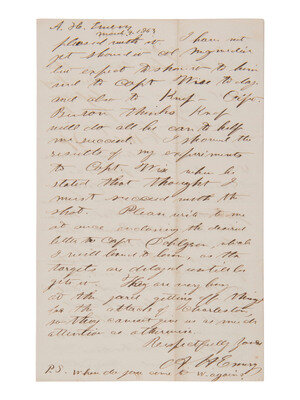 A. H. Emery
March 9. 1863
pleased with it. I have not
yet showed it
but expect to show it to him
and to Capt Wise to day
and also to
thinks
will do all he can to help
me succeed. I showed the
results of my experiments
to Capt Wise when he
stated that thought I
must succeed with the
shot. Please write to me
at once enclosing the desired
letter to Capt Dahlgren which
I will send to him, as the
targets are delayed until he
gets it. They are very busy
at the yard getting off things
for the attack of Charleston,
so they cannot give us as much
attention as otherwise.
Respectfully Yours
A H Emery
P.S. When do you come to W again?